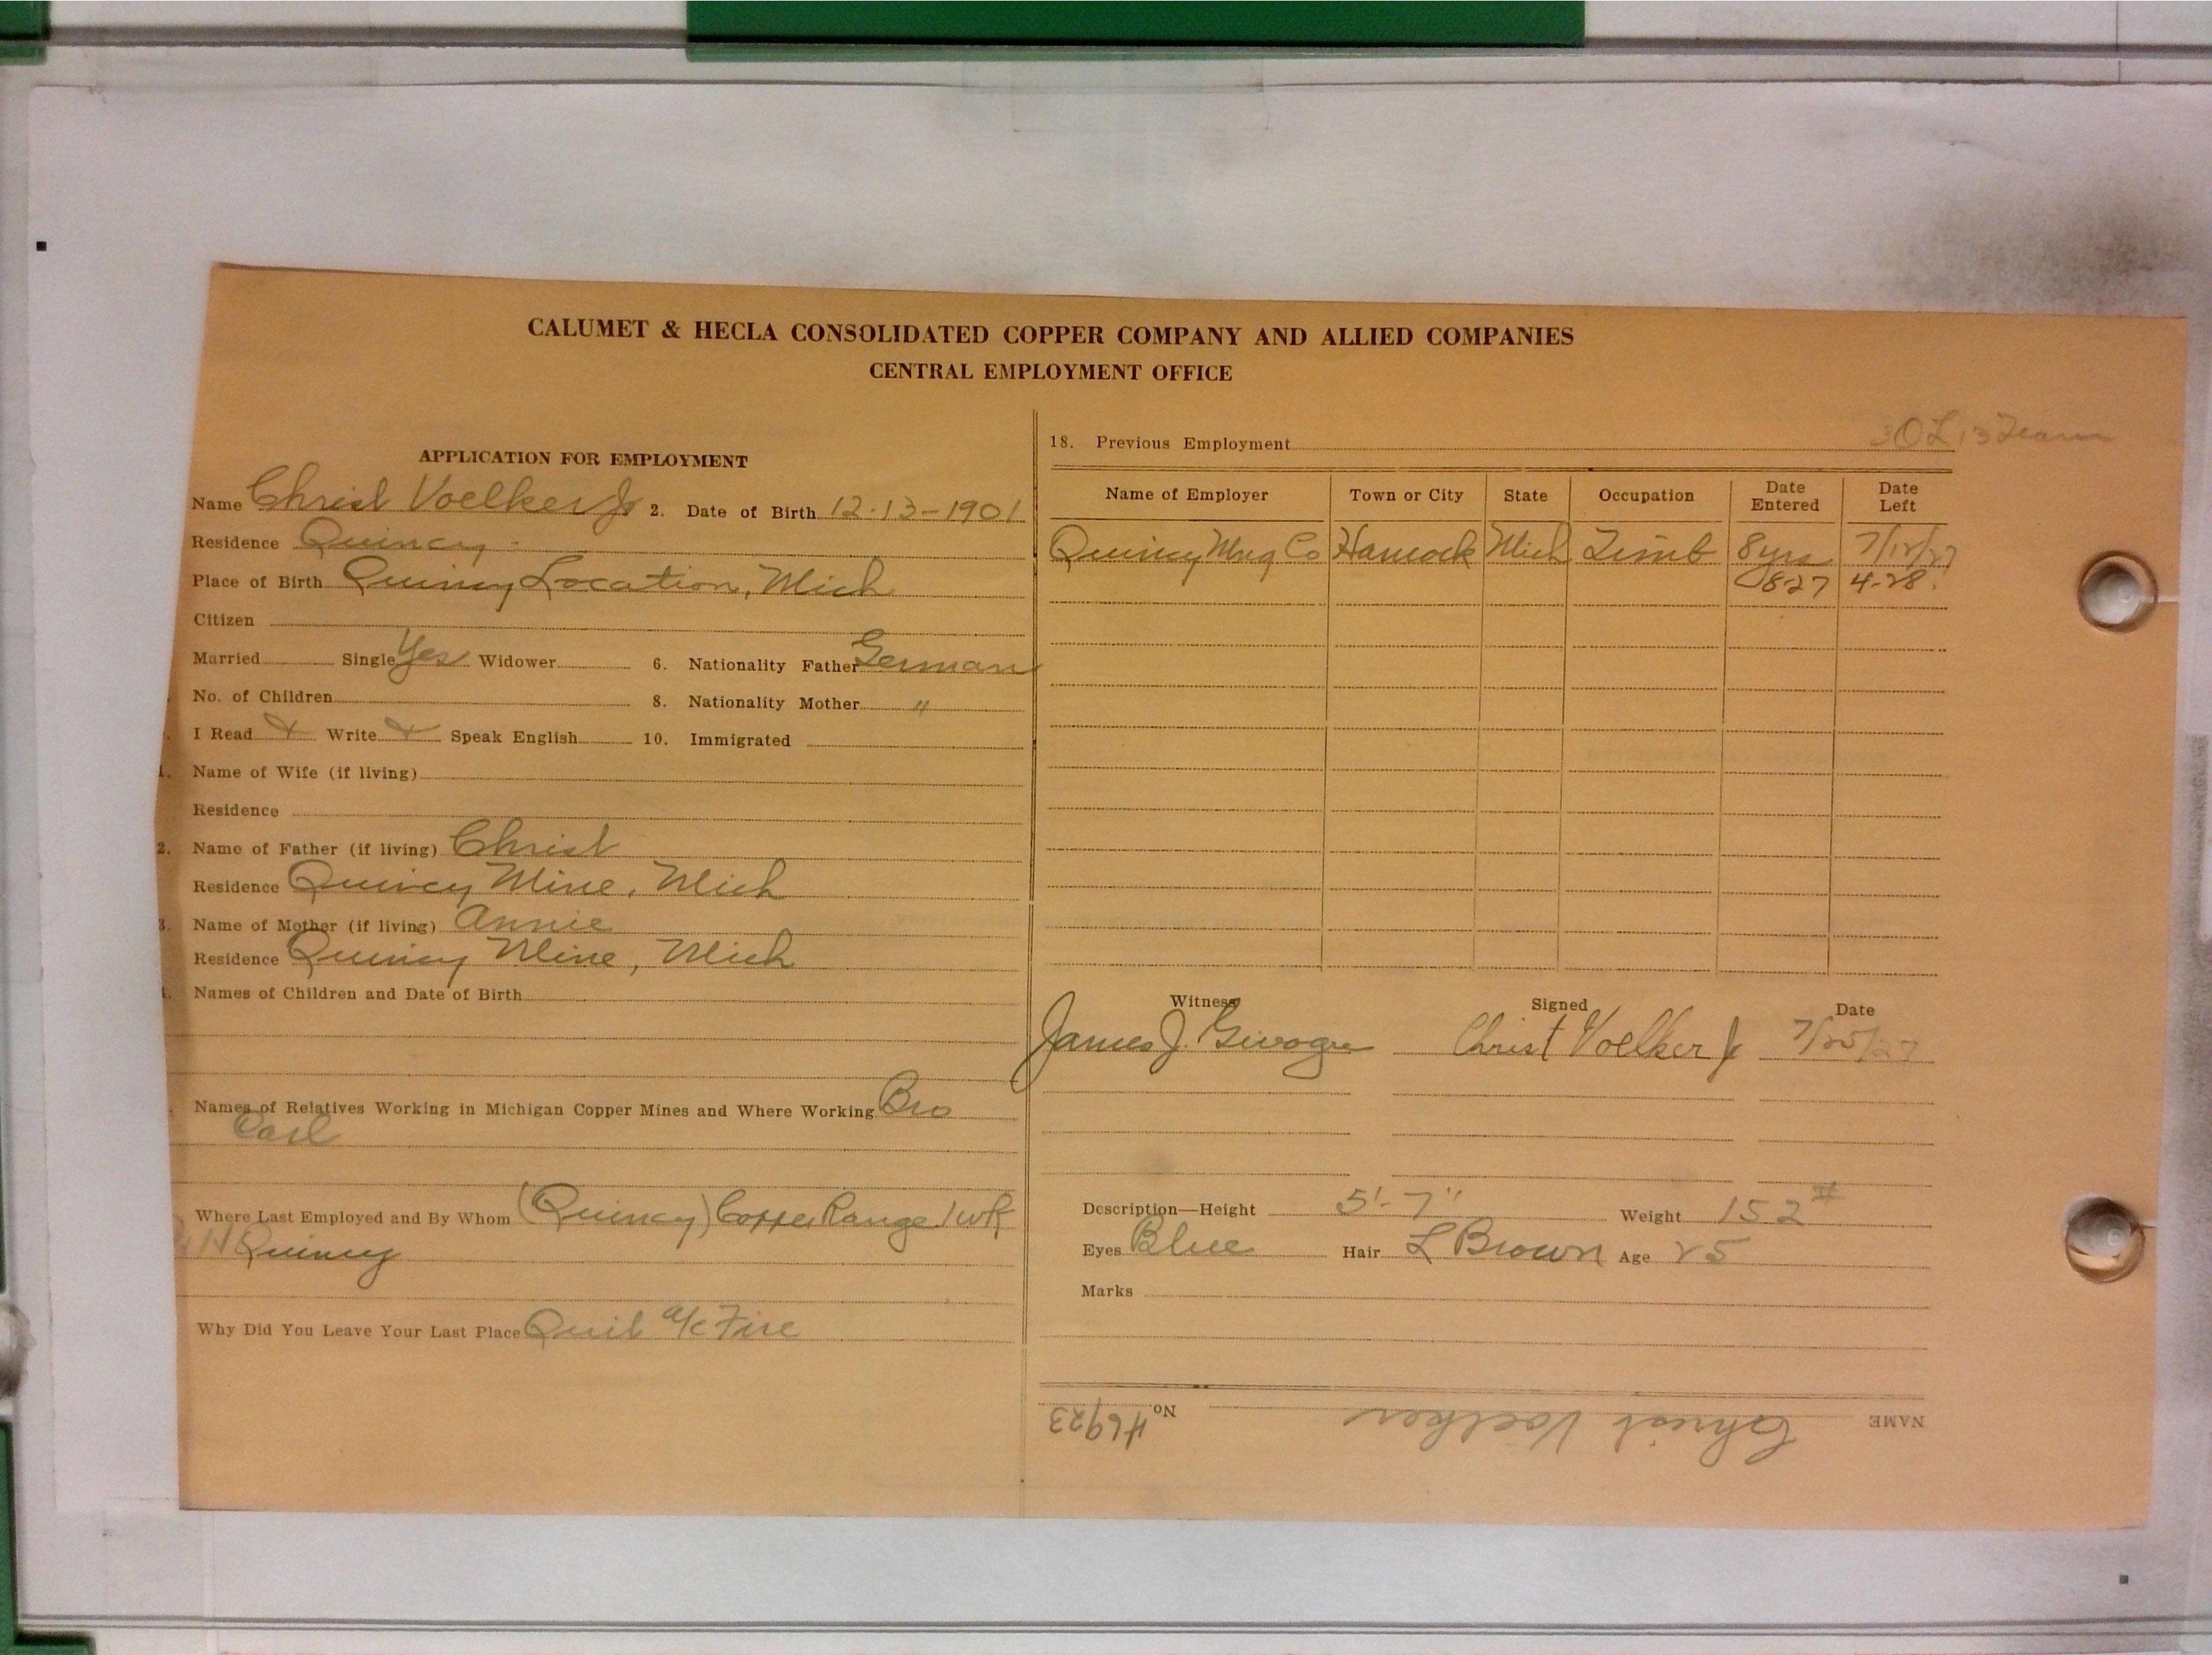 CALUMET & HECLA CONSOLIDATED COPPER COMPANY AND ALLIED COMPANIES
CENTRAL EMPLOYMENT OFFICE
APPLICATION FOR EMPLOYMENT
Name Christ Voelker Jr 2. Date of Birth 12-13-1901
Residence Quincy
Place of Birth Quincy Location, Mich
Citizen
Married Single Yes Widower 6. Nationality Father German
No. of Children 8. Nationality Mother "
I Read Write Speak English 10. Immigrated
1. Name of Wife (if living)
Residence
2. Name of Father (if living) Christ
Residence Quincy Mine, Mich
3. Name of Mother (if living) Annie
Residence Quincy Mine, Mich
Names of Children and Date of Birth
Names of Relatives Working in Michigan Copper Mines and Where Working Bro
Carl
Where Last Employed and By Whom (Quincy) Copper Range 1 wk
Quincy
Why Did You Leave Your Last Place Quit a/c Fire
18. Previous Employment
Name of Employer Town or City State Occupation Date Entered Date Left
Quincy Mng Co Hancock Mich Timb 8 yrs 7/12/27
827 4-28
Witness Signed Date
James J. Christ Voelker Jr 7/25/27
Description—Height 5'-7" Weight 152 #
Eyes Blue Hair L Brown Age 25
Marks
NAME Christ Voelker No. H6923